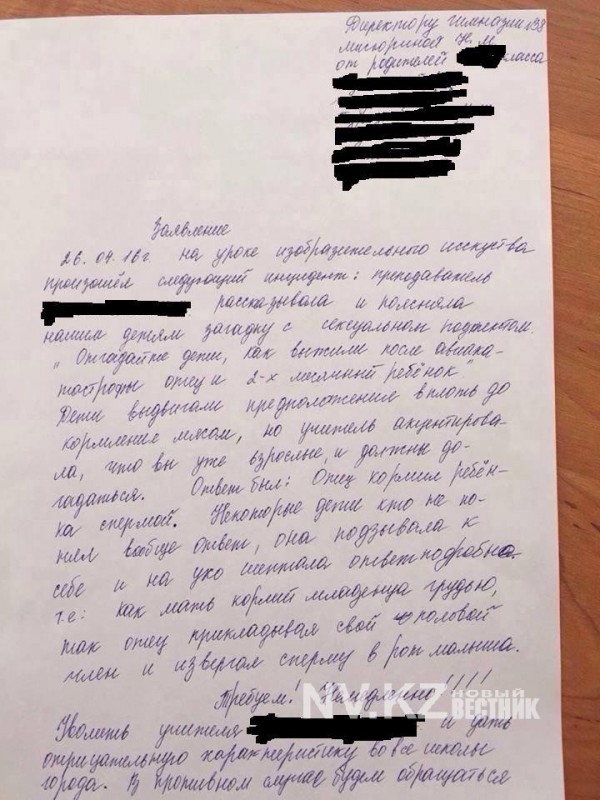 Директору гимназии №38
Мигюриной Н.М.
от родителей класса
Заявление
26.04.16г. на уроке изобразительного исскуства
произошёл следующий инцидент: преподаватель
рассказывала и поясняла
нашим детям загадку с сексуальным подтекстом.
"Отгадайте дети, как выжили после авиака-
тастрофы отец и 2-х месячный ребёнок"
Дети выдвигали предположение вплоть до
кормление мясом, но учитель акцентирова-
ла, что вы уже взрослые, и должны до-
гадаться. Ответ был: Отец кормил ребён-
ка спермой. Некоторые дети кто не по-
нял вообще ответ, она подзывала к
себе и на ухо шептала ответ подробно
т.е: как мать кормит младенца грудью,
так отец прикладывая свой половой
член и извергал сперму в рот малыша.
Требуем! Немедленно!!!!
Уволить учителя и дать
отрицательную характеристику во все школы
города. В противном случае будем обращаться
NV.KZ НОВЫЙ
ВЕСТНИК